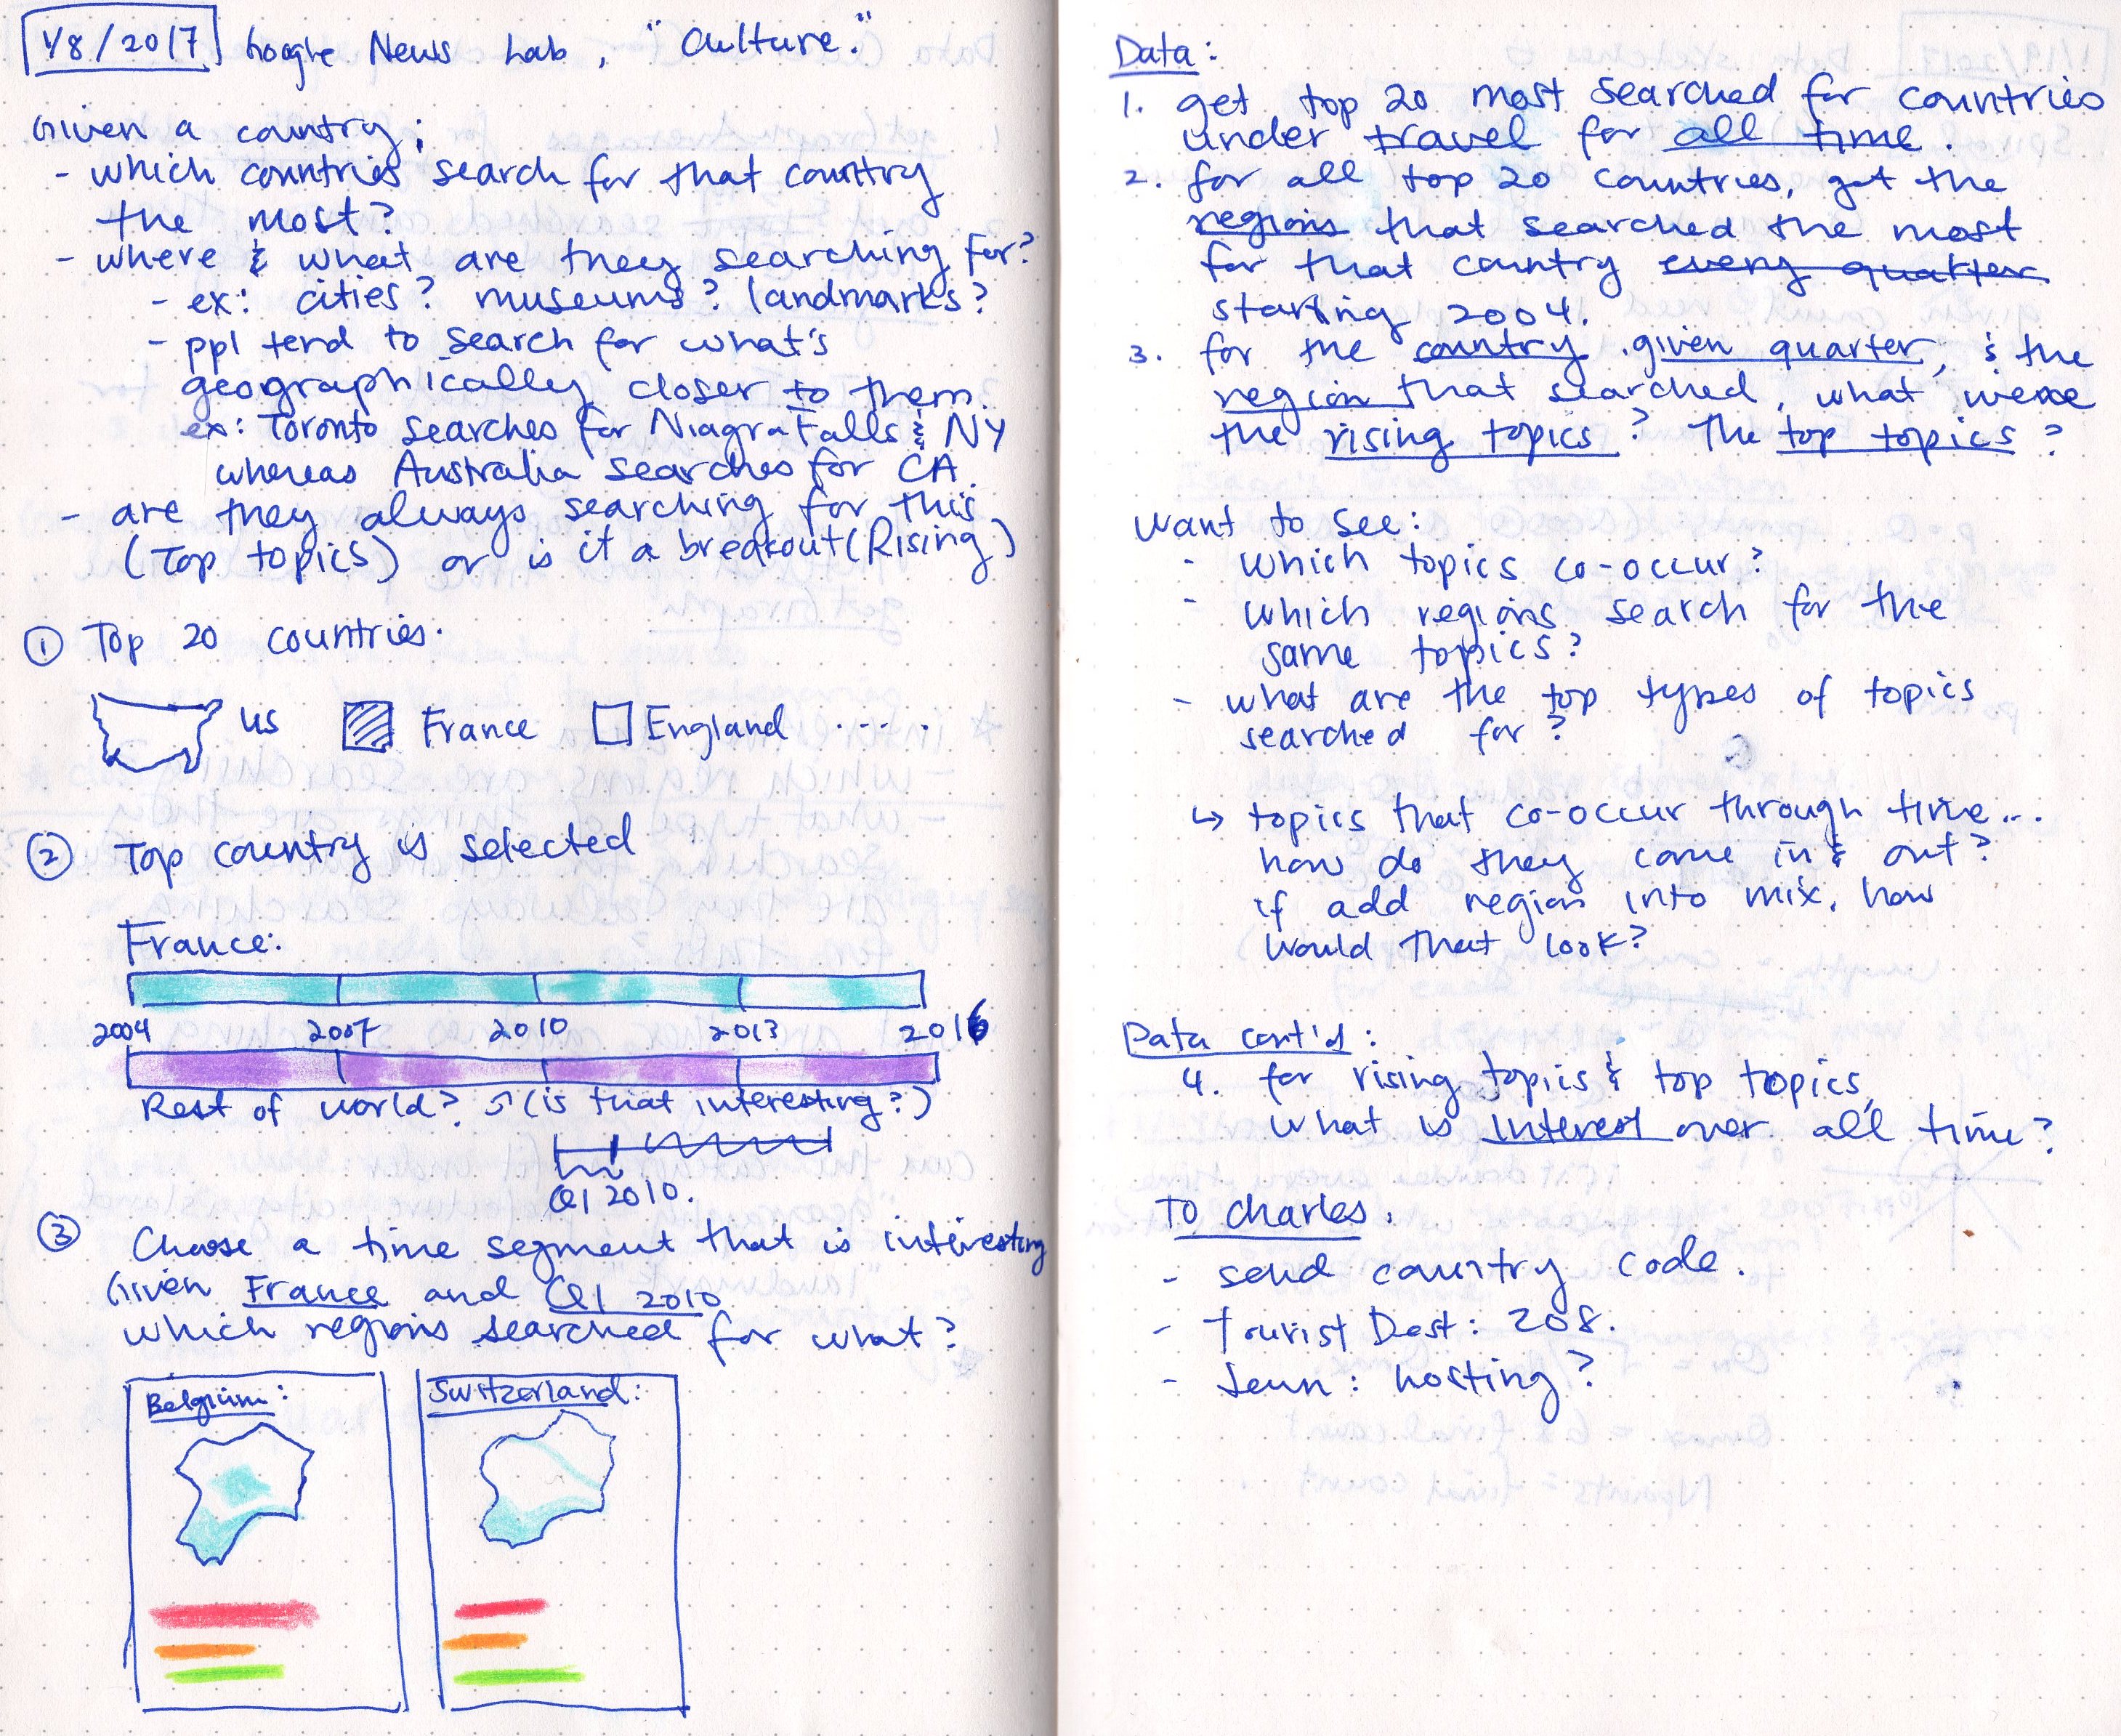 1/8/2017 Google News Lab, "Culture."
Given a country:
- which countries search for that country
the most?
- where & what are they searching for?
- ex: cities? museums? landmarks?
- ppl tend to search for what's
geographically closer to them.
ex: Toronto searches for Niagra Falls & NY
whereas Australia searches for CA.
- are they always searching for this
(Top topics) or is it a breakout (Rising)
① Top 20 countries.
US France England ....
② Top country is selected
France:
2004 2007 2010 2013 2016
Rest of world? (is that interesting?)
Q1 2010.
③ Choose a time segment that is interesting
Given France and Q1 2010
which regions searched for what?
Belgium: Switzerland:
Data:
1. get top 20 most searched for countries
under travel for all time.
2. for all top 20 countries, get the
regions that searched the most
for that country every quarter
starting 2004.
3. for the country, given quarter, & the
region that searched, what were
the rising topics? The top topics?
Want to see:
- Which topics co-occur?
- which regions search for the
same topics?
- what are the top types of topics
searched for?
↳ topics that co-occur through time...
how do they come in & out?
if add region into mix, how
would that look?
Data cont'd:
4. for rising topics & top topics,
what is interest over all time?
To Charles.
- send country code.
- Tourist Dest: 208.
- hosting?